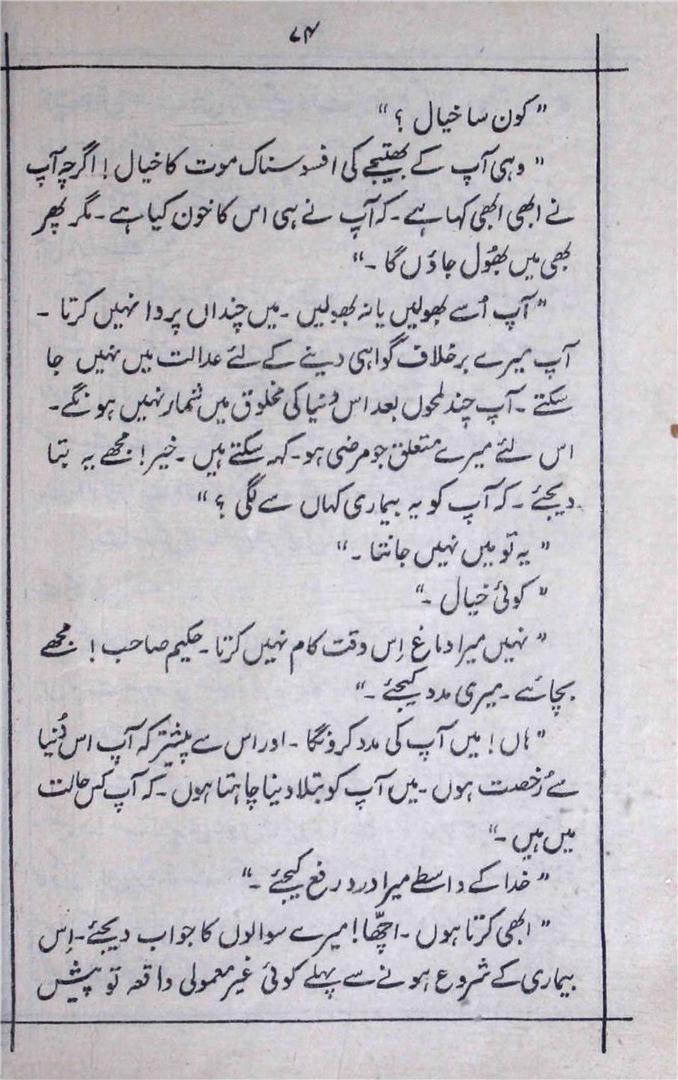 ۷۴
" کون سا خیال ؟ "
" وہی آپ کے بھتیجے کی افسوسناک موت کا خیال ! اگرچہ آپ
نے ابھی ابھی کہا ہے ۔ کہ آپ نے ہی اس کا خون کیا ہے ۔ مگر پھر
بھی میں بھُول جاؤں گا ۔"
" آپ اُسے بھولیں یا نہ بھولیں ۔ میں چنداں پروا نہیں کرتا ۔
آپ میرے برخلاف گواہی دینے کے لئے عدالت میں نہیں جا
سکتے ۔ آپ چند لمحوں بعد اس دُنیا کی مخلوق میں شمار نہیں ہونگے ۔
اس لئے میرے متعلق جو مرضی ہو ۔ کہہ سکتے ہیں ۔ خیر ! مجھے یہ بتا
دیجئے ۔ کہ آپ کو یہ بیماری کہاں سے لگی ؟ "
" یہ تو میں نہیں جانتا ۔"
" کوئی خیال ۔"
" نہیں میرا دماغ اِس وقت کام نہیں کرتا ۔ حکیم صاحب ! مجھے
بچائے ۔ میری مدد کیجئے ۔"
" ہاں ! میں آپ کی مدد کرونگا ۔ اور اس سے پیشتر کہ آپ اس دُنیا
سے رُخصت ہوں ۔ میں آپ کو بتلا دینا چاہتا ہوں ۔ کہ آپ کس حالت
میں ہیں ۔"
" خدا کے واسطے میرا درد رفع کیجئے ۔"
" ابھی کرتا ہوں ۔ اچھّا ! میرے سوالوں کا جواب دیجئے ۔ اِس
بیماری کے شروع ہونے سے پہلے کوئی غیر معمولی واقعہ تو پیش